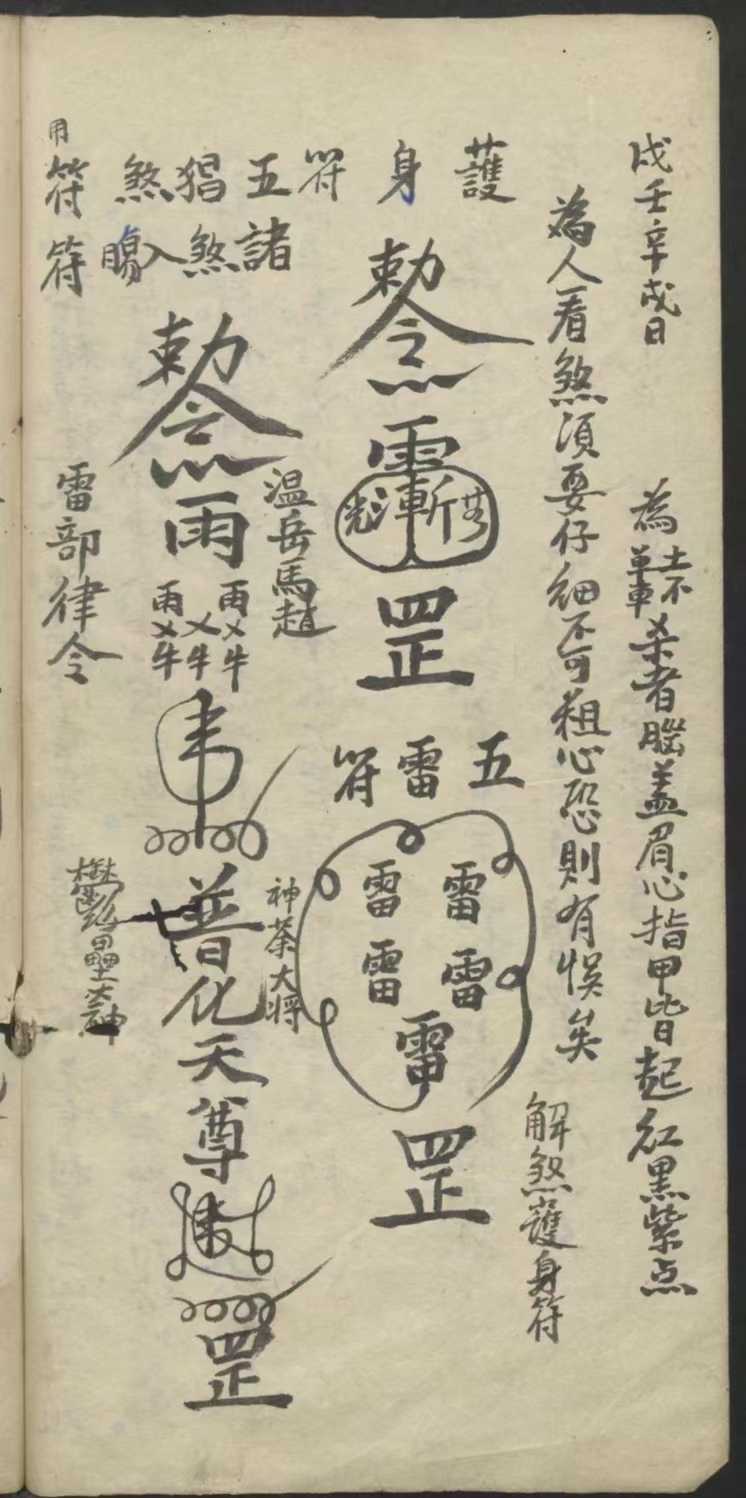 戊壬辛戌日
為 杀者腦盖眉心指甲皆起红黑紫点
為人看煞須要仔细不可粗心恐則有悞矣
解煞護身符
護身符
勅令
罡
五雷符
雷雷雷雷
罡
五猖煞
諸煞入腸
用符符
勅令
雨
温岳馬趙
普化天尊
神荼大将
罡
雷部律令
欝壘大神